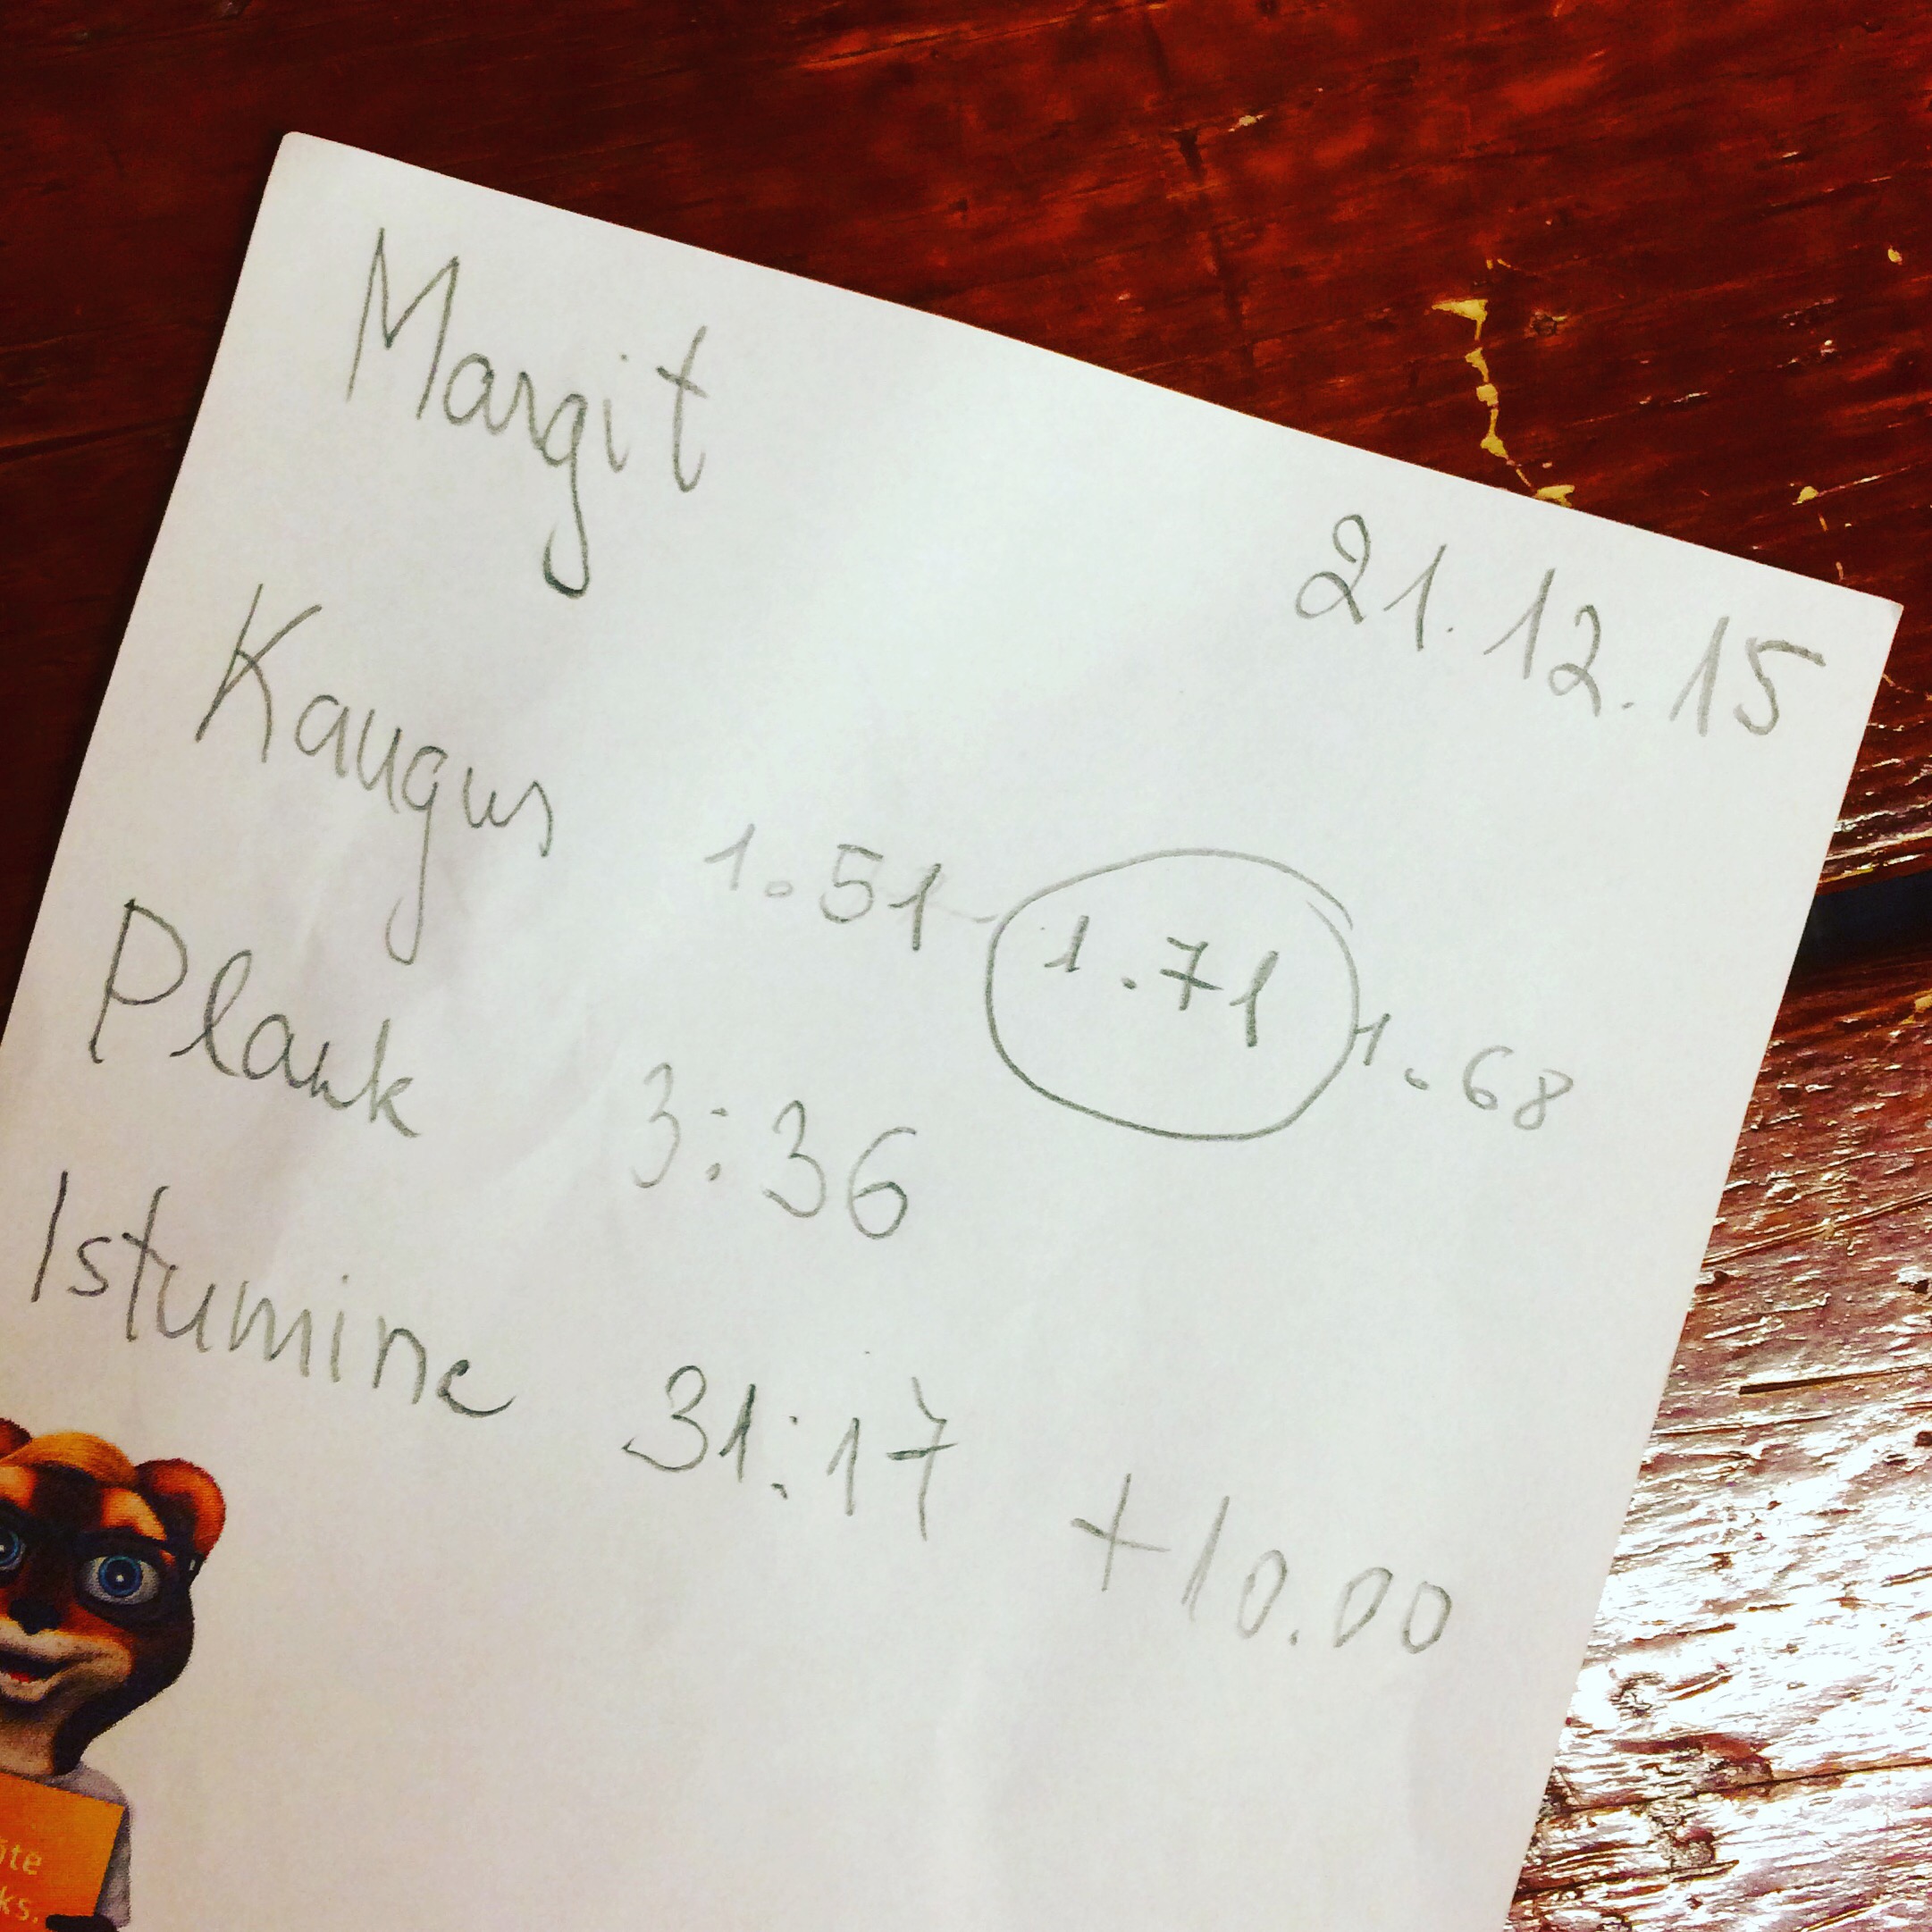 Margit
21.12.15
Kaugus 1.51 1.71 1.68
Plank 3:36
Istumine 31:17 +10.00
õte
ks.